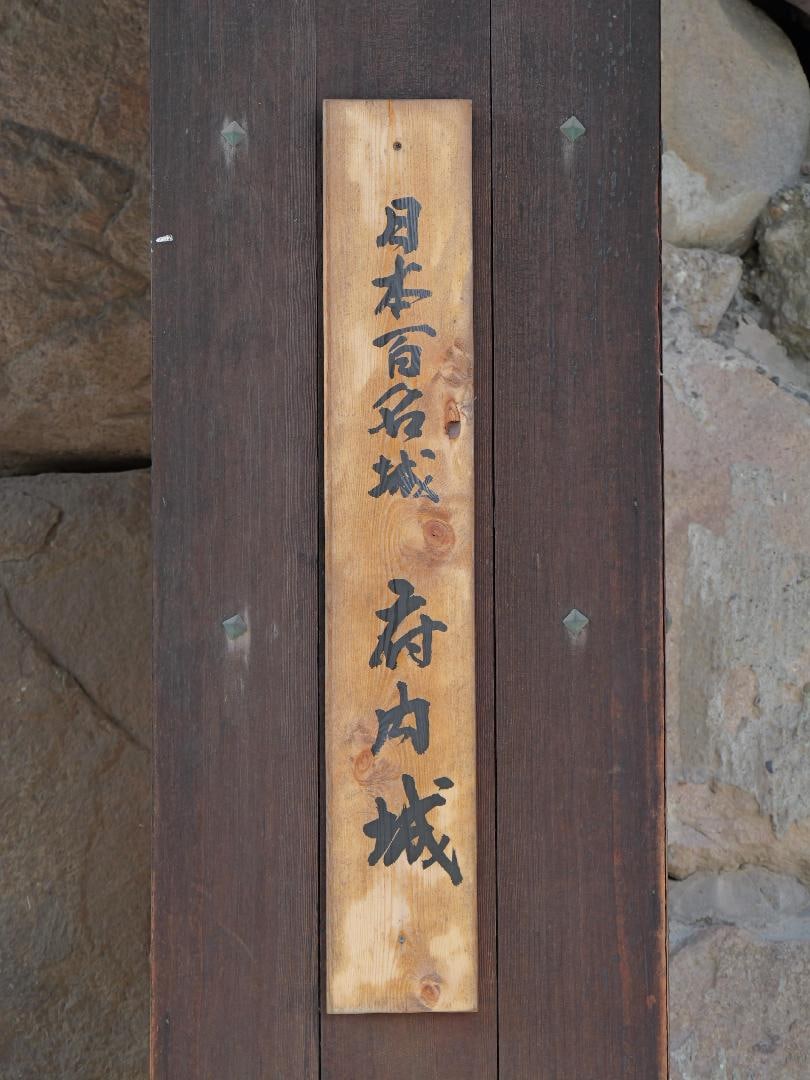 日本百名城 府内城